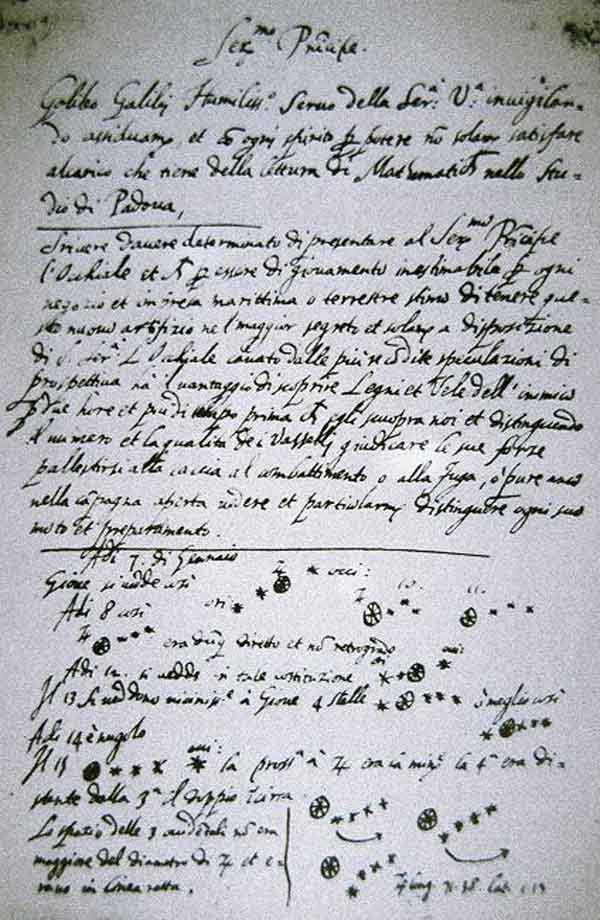 Ser.mo Principe.
Galileo Galilei Humiliss.o Servo della Ser.a V.a invigilan-
do assiduam.te, et con ogni spirito per potere non solam.te satisfare
al carico che tiene della lettura di Mathematiche nello Stu-
dio di Padova,
Scrivere d'avere determinato di presentare al Ser.mo Principe
l'Occhiale et per essere di giovamento inestimabile per ogni
negozio et impresa marittima o terrestre stimo di tenere que-
sto nuovo artifizio nel maggior segreto et solam.te a disposizione
di S. Ser.a L'Occhiale cavato dalle più recondite speculazioni di
prospettiva ha il vantaggio di scoprire Legni et Vele dell'inimico
per due hore et più di tempo prima che egli scuopra noi et distinguendo
il numero et la qualità dei Vasselli giudicare le sue forze
pallestirsi alla caccia al combattimento o alla fuga, o pure anco
nella campagna aperta vedere et particularm.te distinguere ogni suo
moto et preparamento.
Adi 7. di Gennaio
Gione si vedde così occi:
Adi 8 così ori: 10. 11.
era diretto et non retrogrado
Adi 12. si vedde in tale costituzione
Il 13 si veddono viciniss.e à Giove 4 stelle è meglio così
Adi 14 è nugolo
Il 15 la pross.a à era la min.e la 4.a era di-
stante dalla 3.a il doppio
Lo spazio delle 3 occidentali non era
maggiore del diametro di et e-
rano in linea retta.
long. 71.38. Lat. 1.13